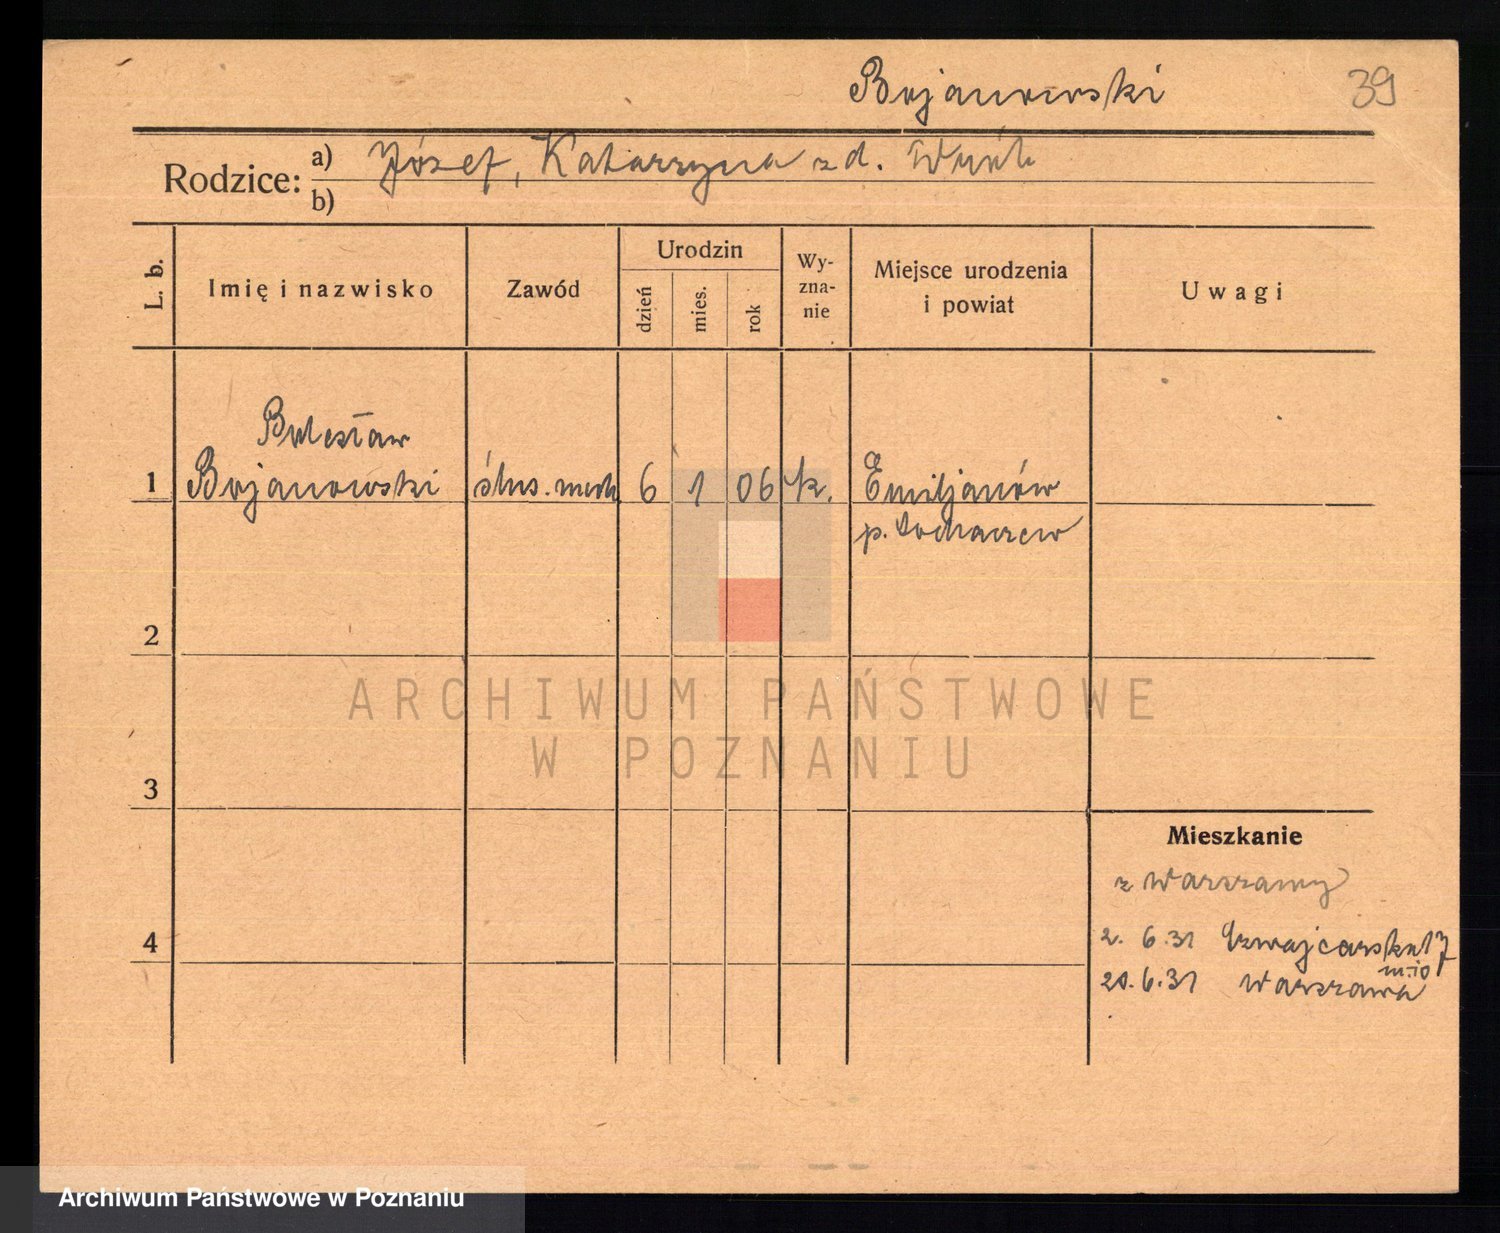 Bojanowski 39
Rodzice: a) Józef, Katarzyna z d.
b)
L. b.
Imię i nazwisko
Zawód
Urodzin
dzień
mies.
rok
Wy-
zna-
nie
Miejsce urodzenia
i powiat
Uwagi
Bolesław
1 Bojanowski ślus. mech. 6 1 06 rk. Emiljanów
p. Sochaczew
2
3
4
ARCHIWUM PAŃSTWOWE
W POZNANIU
Mieszkanie
z Warszawy
2. 6.31 Szwajcarska 17
m. 10
20.6.31 Warszawa
Archiwum Państwowe w Poznaniu